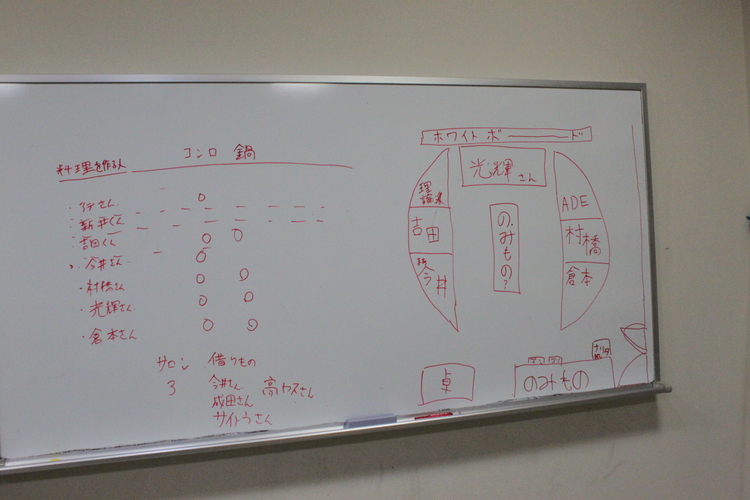 コンロ 鍋
料理を作る人
・アデさん ○
・新井くん
・吉田くん ○ ○
・今井さん ○
・村橋さん ○ ○
・光輝さん ○ ○
・倉本さん ○ ○
サロン 借りもの
3 今井さん 高ヤスさん
成田さん
サイトウさん
ホワイトボード
光輝さん
吉田
今井
のみもの?
ADE
村橋
倉本
卓
のみもの